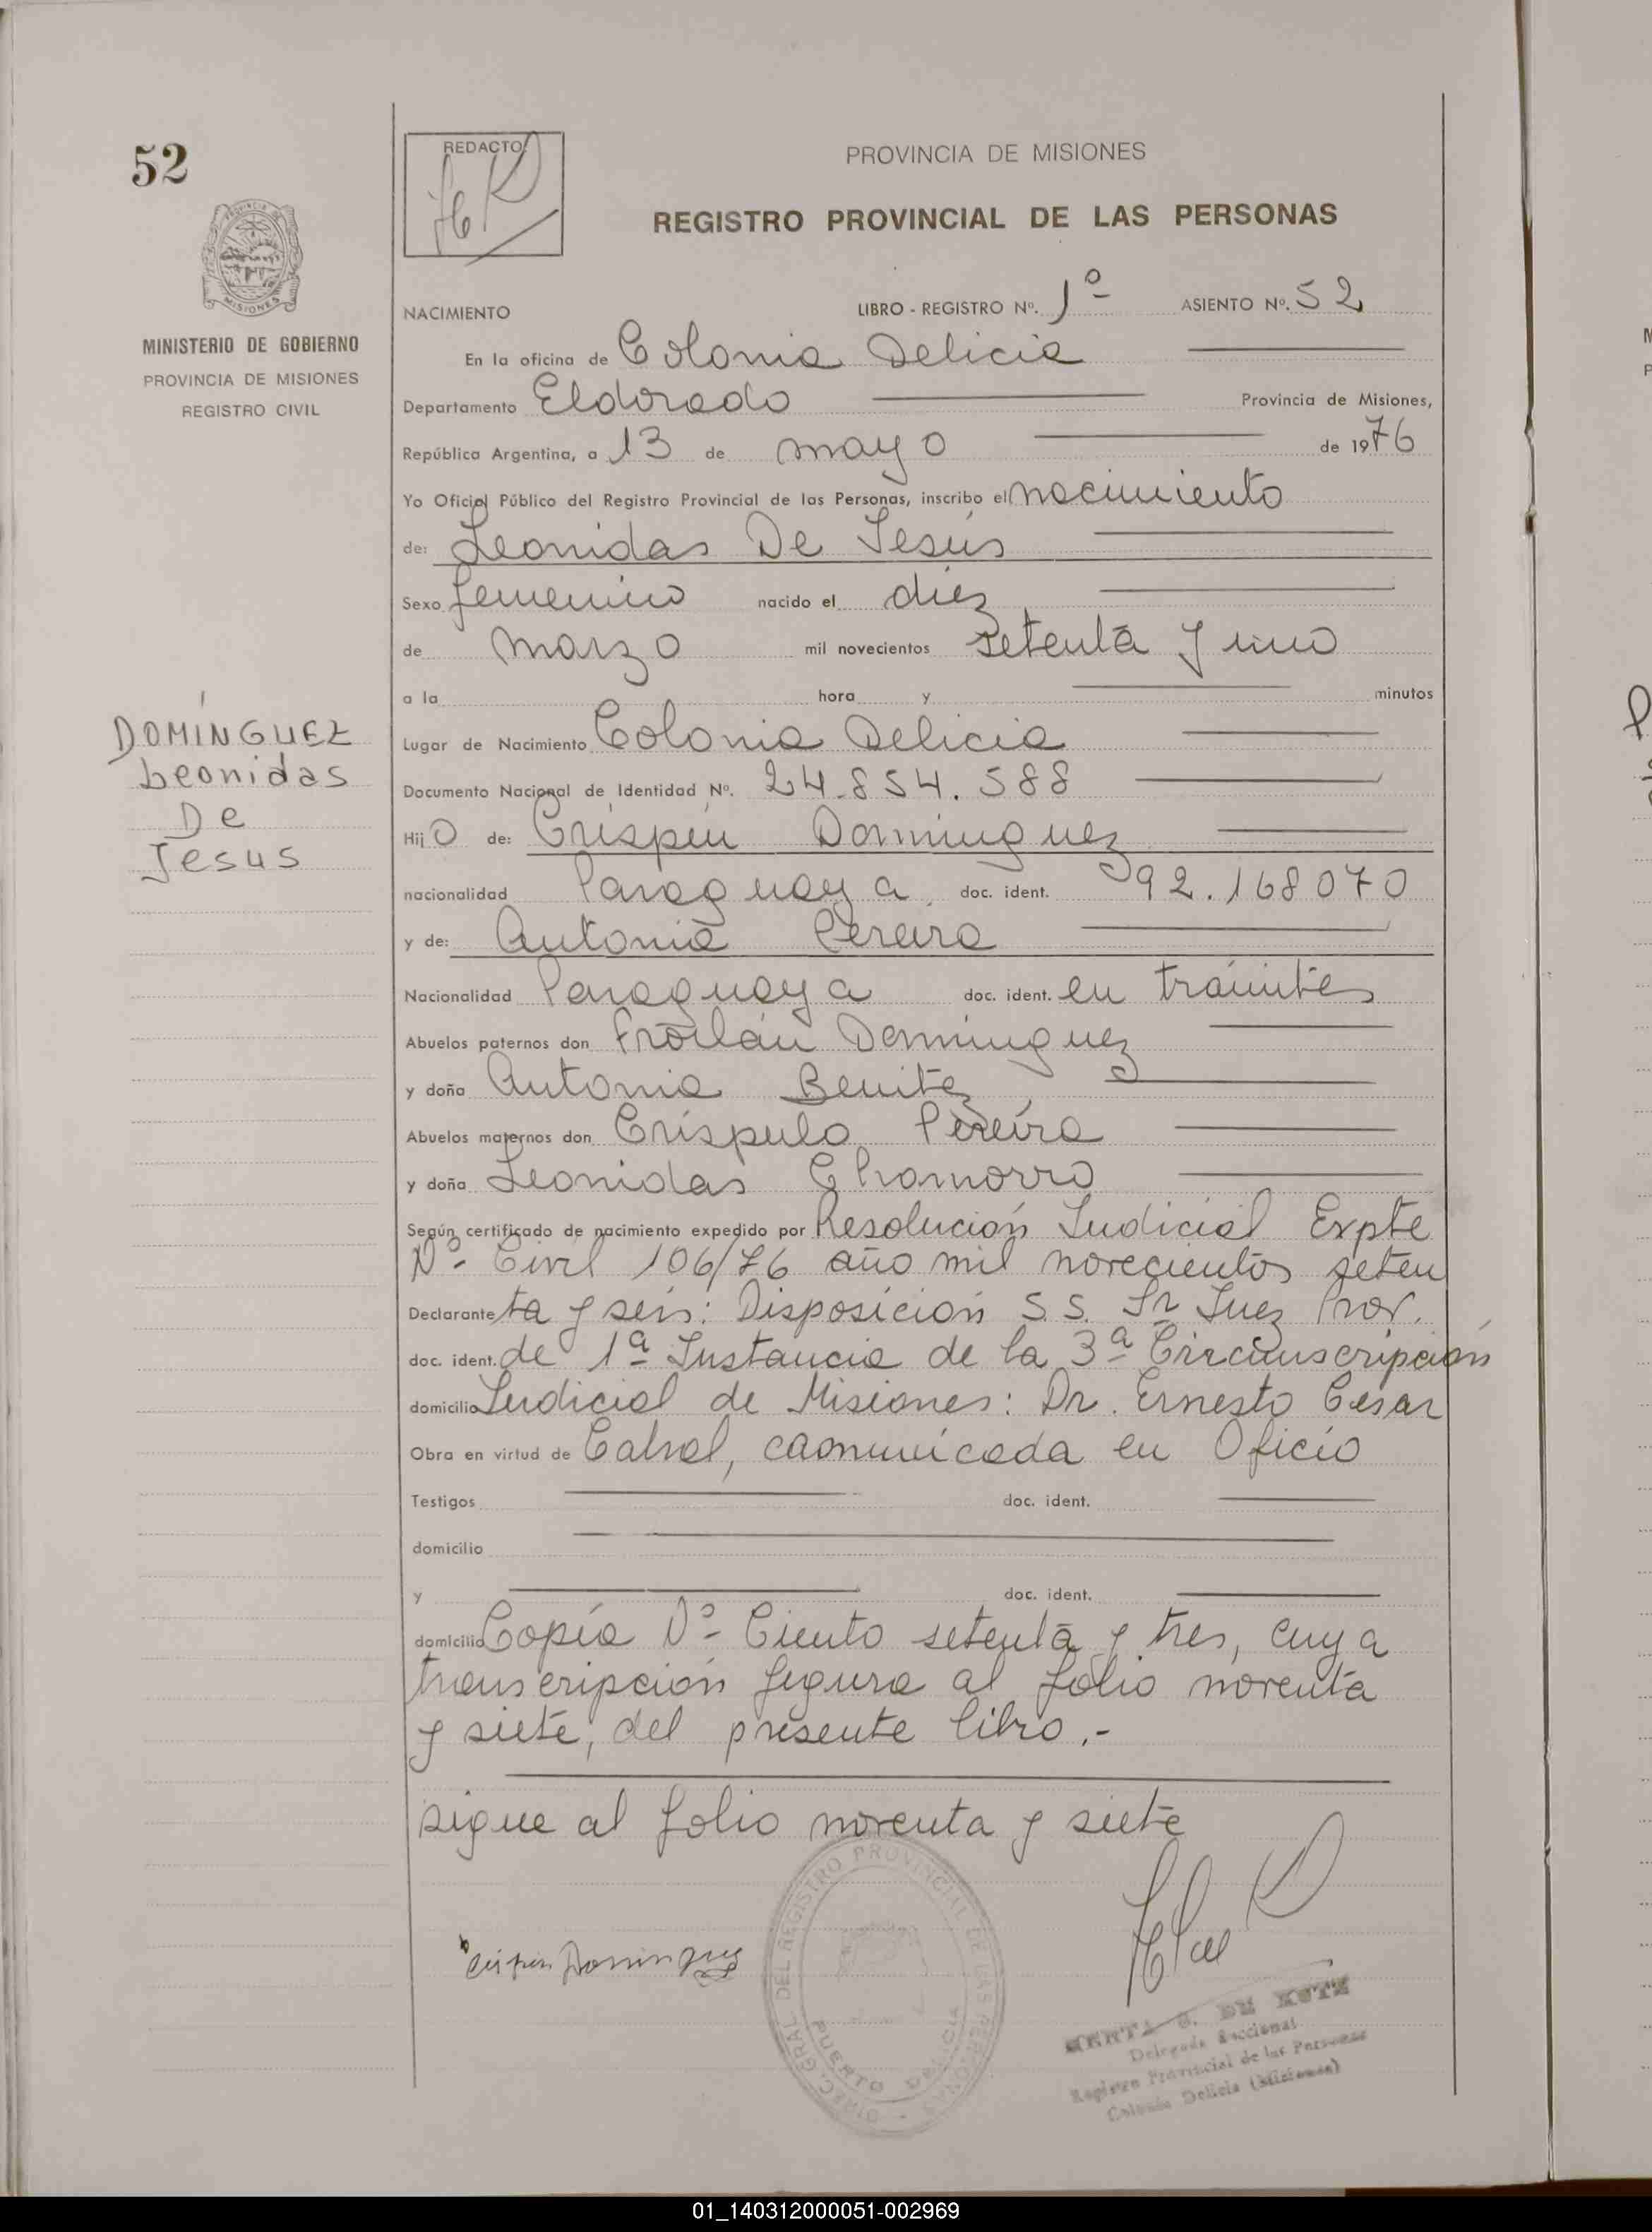 52
REDACTO:
PROVINCIA DE MISIONES
REGISTRO PROVINCIAL DE LAS PERSONAS
PROVINCIA DE
MISIONES
MINISTERIO DE GOBIERNO
PROVINCIA DE MISIONES
REGISTRO CIVIL
NACIMIENTO LIBRO - REGISTRO Nº. 1º ASIENTO Nº. 52
En la oficina de Colonia Delicia
Departamento Eldorado Provincia de Misiones,
República Argentina, a 13 de mayo de 1976
Yo Oficial Público del Registro Provincial de las Personas, inscribo el nacimiento
de: Leonidas De Jesús
Sexo femenino nacido el diez
de marzo mil novecientos setenta y uno
a la hora y minutos
DOMÍNGUEZ
Leonidas
De
Jesus
Lugar de Nacimiento Colonia Delicia
Documento Nacional de Identidad Nº. 24.854.588
Hijo de: Crispin Dominguez
nacionalidad Paraguaya doc. ident. 92.168070
y de: Antonia Pereira
Nacionalidad Paraguaya doc. ident. en trámites
Abuelos paternos don Froilán Dominguez
y doña Antonia Benitez
Abuelos maternos don Críspulo Pereira
y doña Leonidas Chamorro
Según certificado de nacimiento expedido por Resolución Judicial Expte
Nº Civil 106/76 año mil novecientos seten
Declarante ta y seis: Disposición S.S. Sr Juez Prov.
doc. ident. de 1ª Instancia de la 3ª Circunscripción
domicilio Judicial de Misiones: Dr. Ernesto Cesar
Obra en virtud de Cabral, comunicada en Oficio
Testigos doc. ident.
domicilio
y doc. ident.
domicilio Copía Nº Ciento setenta y tres, cuya
transcripción figura al folio noventa
y siete, del presente libro.-
sigue al folio noventa y siete
Crispin Dominguez
DIREC. GRAL DEL REGISTRO PROVINCIAL DE LAS PERSONAS
PUERTO DELICIA
DE KUTZ
Delegada Seccional
Registro Provincial de las Personas
Colonia Delicia (Misiones)
01_140312000051-002969